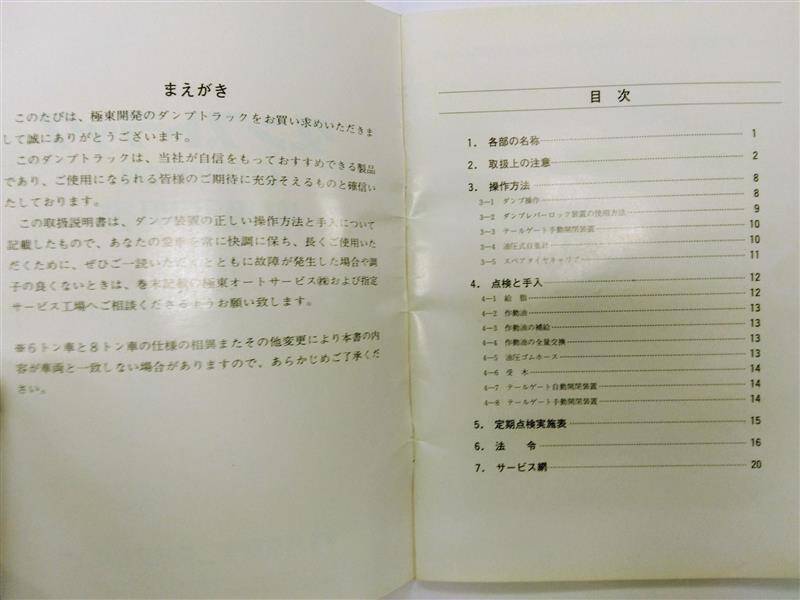 まえがき
このたびは、極東開発のダンプトラックをお買い求めいただきま
して誠にありがとうございます。
このダンプトラックは、当社が自信をもっておすすめできる製品
であり、ご使用になられる皆様のご期待に充分そえるものと確信い
たしております。
この取扱説明書は、ダンプ装置の正しい操作方法と手入について
記載したもので、あなたの愛車を常に快調に保ち、長くご使用いた
だくために、ぜひご一読いただくとともに故障が発生した場合や調
子の良くないときは、巻末記載の極東オートサービス㈱および指定
サービス工場へご相談くださるようお願い致します。
※6トン車と8トン車の仕様の相異またその他変更により本書の内
容が車両と一致しない場合がありますので、あらかじめご了承くだ
さい。
目 次
1. 各部の名称 1
2. 取扱上の注意 2
3. 操作方法 8
3-1 ダンプ操作 8
3-2 ダンプレバーロック装置の使用方法 9
3-3 テールゲート手動開閉装置 10
3-4 油圧式自重計 10
3-5 スペアタイヤキャリア 11
4. 点検と手入 12
4-1 給 脂 12
4-2 作動油 13
4-3 作動油の補給 13
4-4 作動油の全量交換 13
4-5 油圧ゴムホース 13
4-6 受 木 14
4-7 テールゲート自動開閉装置 14
4-8 テールゲート手動開閉装置 14
5. 定期点検実施表 15
6. 法 令 16
7. サービス網 20